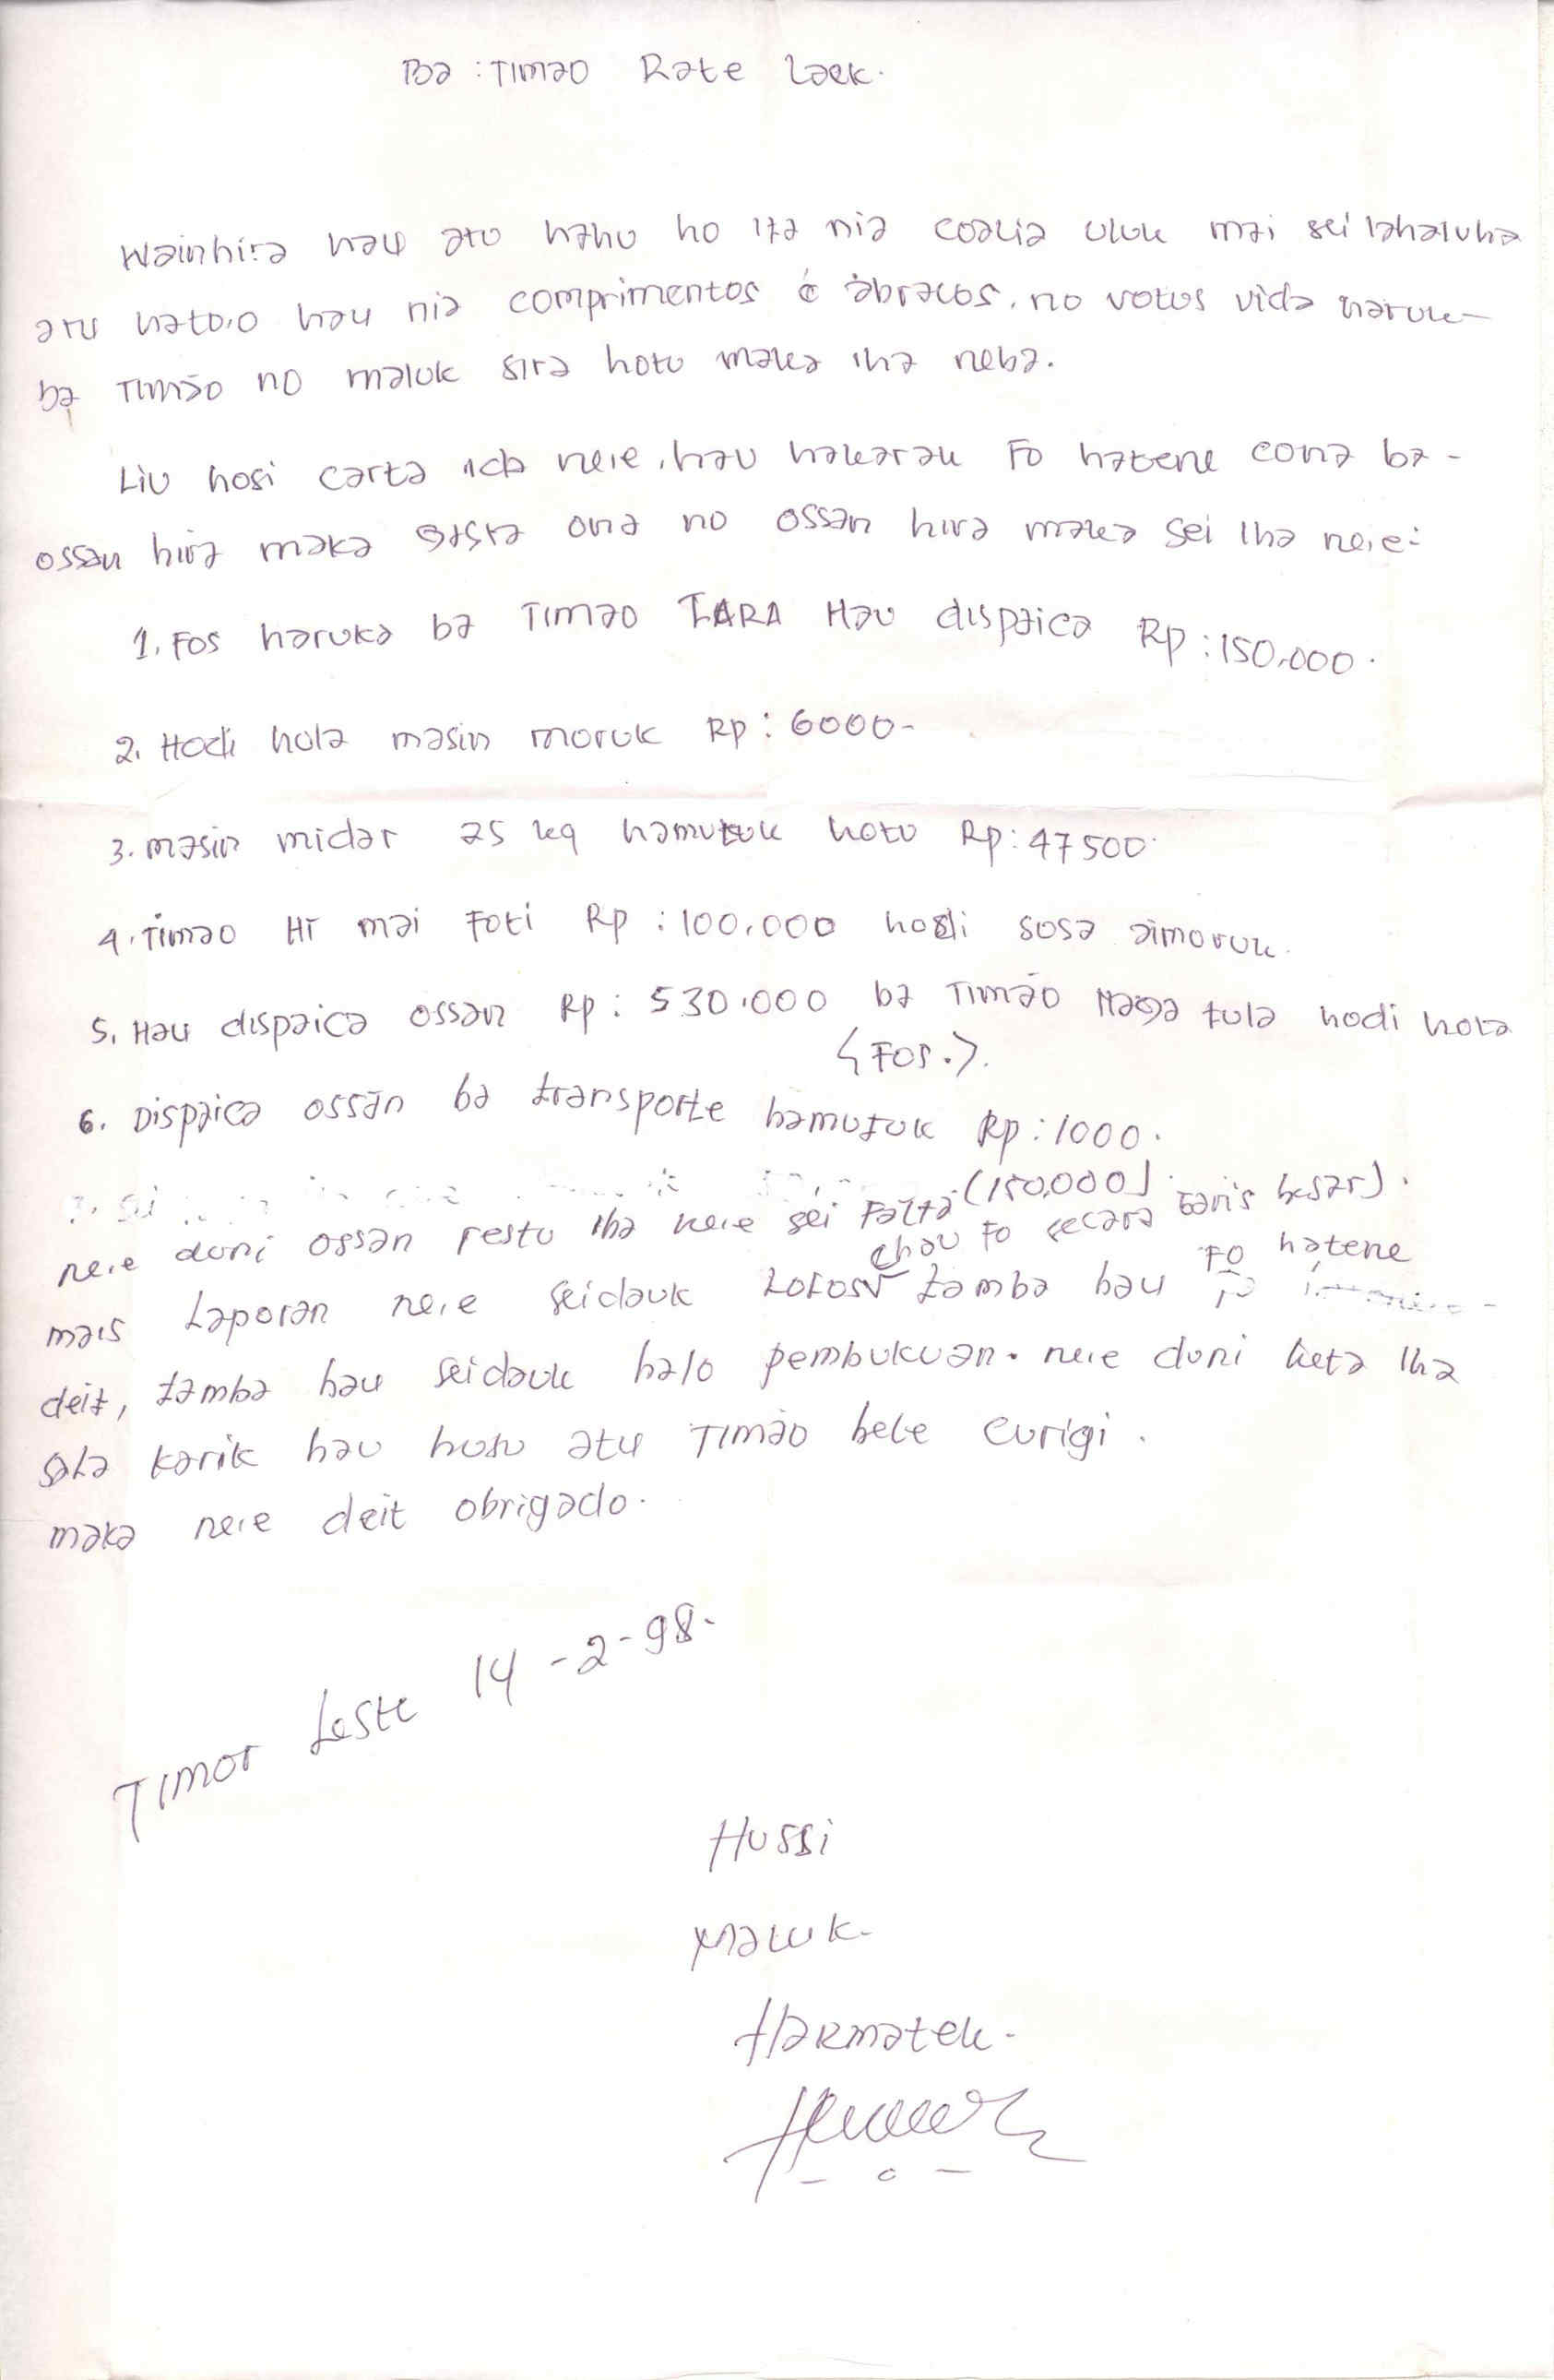 Ba : Timao Rate Laek.
Wainhira hau atu hahu ho ita nia coalia uluk mai sei lahaluha
atu hato,o hau nia comprimentos é abracos, no votus vida naruk-
ba Timão no maluk sira hotu maka iha neba.
Liu hosi carta ida ne,e, hau hakarak Fo hatene cona ba -
ossan hira maka gasta ona no ossan hira maka sei Iha ne,e:
1. Fos haruka ba Timao TARA Hau dispaica Rp : 150.000.
2. Hodi hola masin moruk Rp : 6000-
3. masin midar 25 kg hamutuk hotu Rp : 47500.
4. Timao HI mai Foti Rp : 100.000 hodi sosa aimoruk.
5. Hau dispaica ossan Rp : 530.000 ba Timão tula hodi hola
(Fos.).
6. Dispaica ossan ba transporte hamutuk Rp : 1000.
ne,e duni ossan restu Iha ne,e sei Falta (150,000).
(hau fo secara garis besar).
mais Laporan ne,e seidauk Lolos tamba hau Fo hatene
deit, tamba hau seidauk halo pembukuan. ne,e duni keta Iha
sala karik hau husu atu Timão bele curigi.
maka ne,e deit obrigado.
Timor Leste 14-2-98.
Hussi
Maluk.
Harmatek.